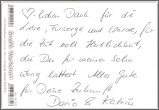 ♡-lichen Dank für die
Liebe, Fürsorge und Wärme, für
die Zeit voll Herzlichkeit,
die Du für meinen Sohn
hattest. Alles Gute
für Deine Zukunft
Doris & Katrin